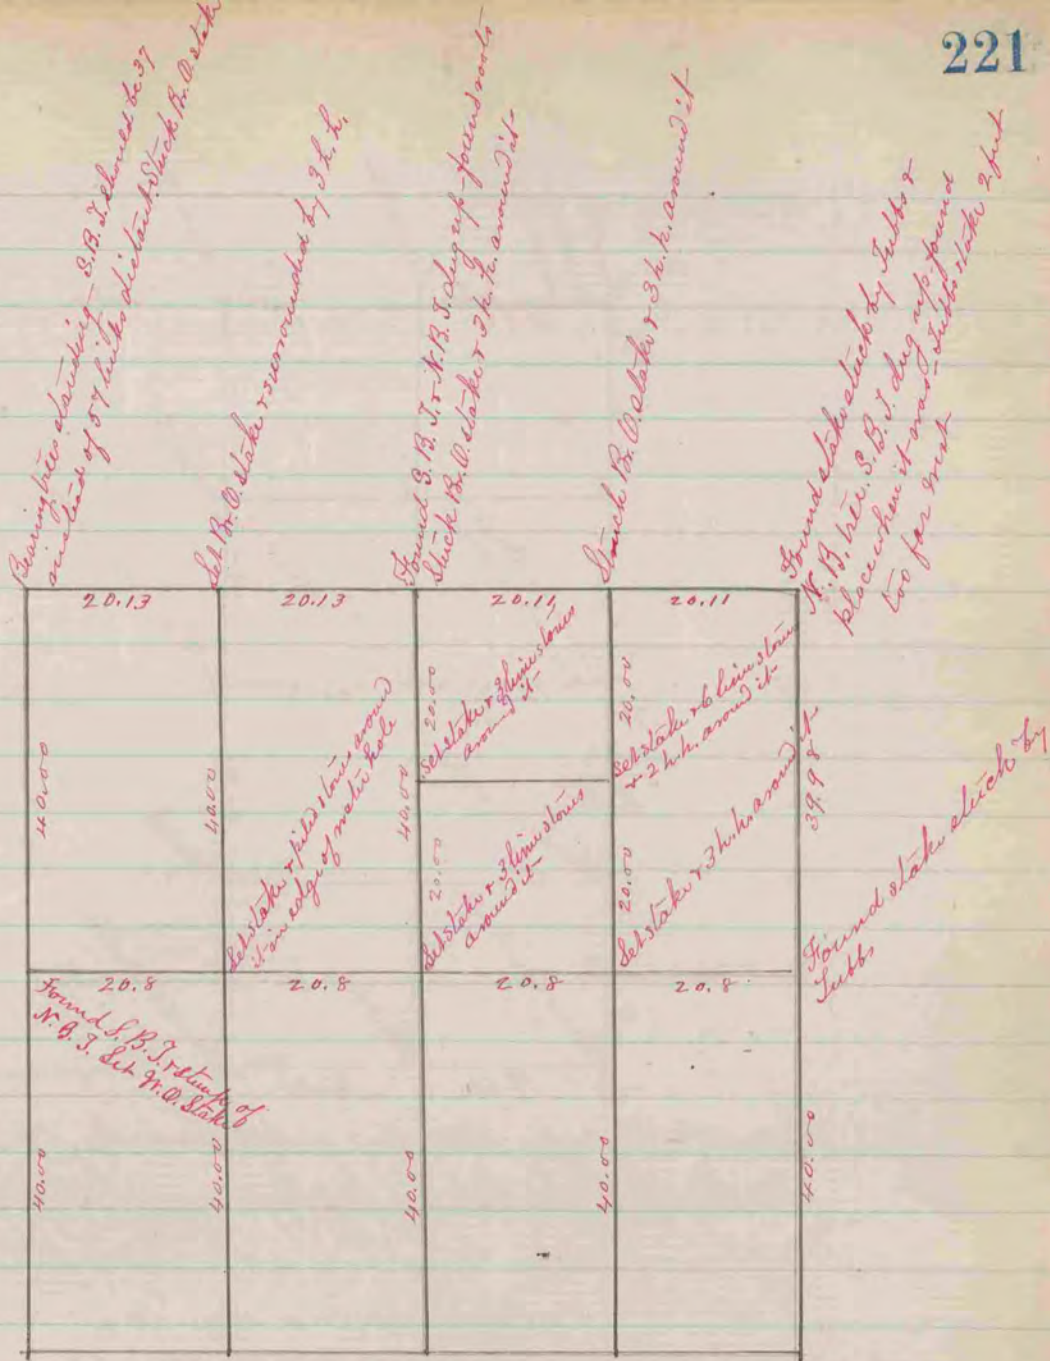 221
Bearing trees standing - S.B.T. should be 37
instead of 57 links distant. Stuck Br. O. stake
Set Br. O. stake & surrounded by 3 h. h.
Found S. B. T. & N. B. T. dug up - found roots
Stuck Br. O. stake & 3 h. h. around it
Stuck Br. O. stake & 3 h. h. around it
Found stake stuck by Tubbs &
N. B. tree. S. B. T. dug up - found
place where it was - Tubbs stake 2 feet
too far west
20.13
20.13
20.11
20.11
40.00
40.00
Set stake & piled stones around
it in edge of water hole
40.00
20.00
Set stake & 3 lime stones
around it
20.00
Set stake & 6 lime stones
& 2 h. h. around it
39.98
20.00
Set stake & 3 lime stones
around it
20.00
Set stake & 3 h. h. around it
Found stake stuck by
Tubbs
20.8
20.8
20.8
20.8
Found S. B. T. & stump of
N. B. T. Set W. O. Stake
40.00
40.00
40.00
40.00
40.00